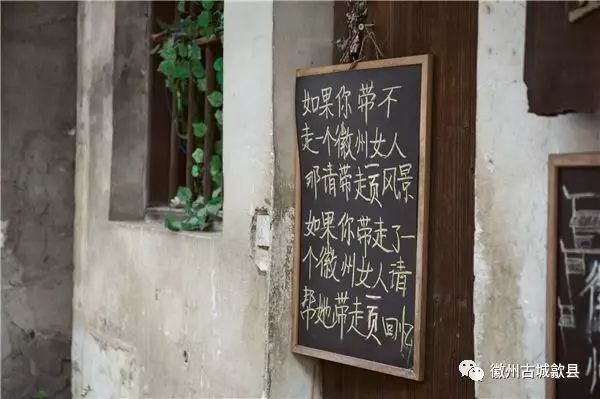 如果你带不
走一个徽州女人
那请带走一页风景
如果你带走了一
个徽州女人请
帮她带走一页回忆
徽州古城歙县